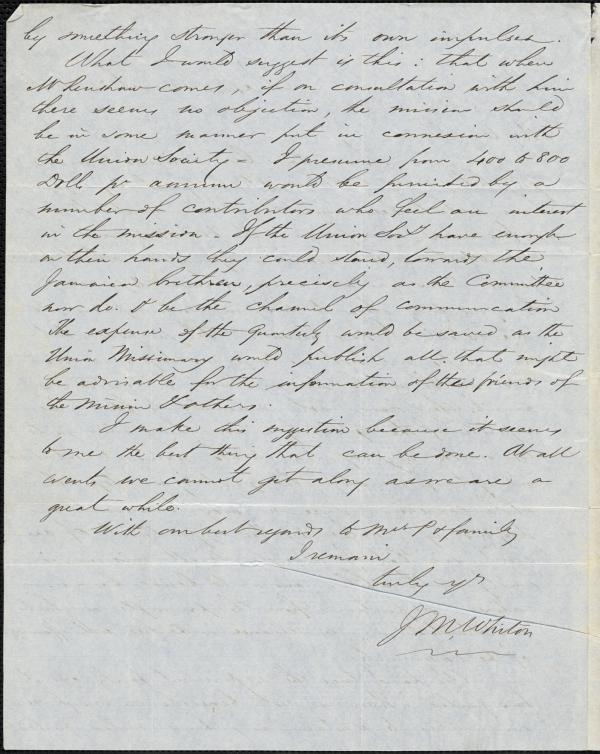 by something stronger than its own impulses.
What I would suggest is this: that when
Mr Renshaw comes, if on consultation with him
there seems no objection, the mission should
be in some manner put in connexion with
the Union Society - I presume from 400 to 800
Dolls pr annum would be furnished by a
number of contributors who feel an interest
in the mission - If the Union Socy have enough
on their hands they could stand, towards the
Jamaica brethren, precisely as the Committee
now do. & be the channel of communication
The expense of the Quarterly would be saved, as the
Union Missionary would publish all that might
be advisable for the information of the friends of
the Mission & others.
I make this suggestion because it seems
to me the best thing that can be done. At all
events we cannot get along as we are a
great while.
With our best regards to Mrs P & family
I remain
truly yrs
J M. Whiton